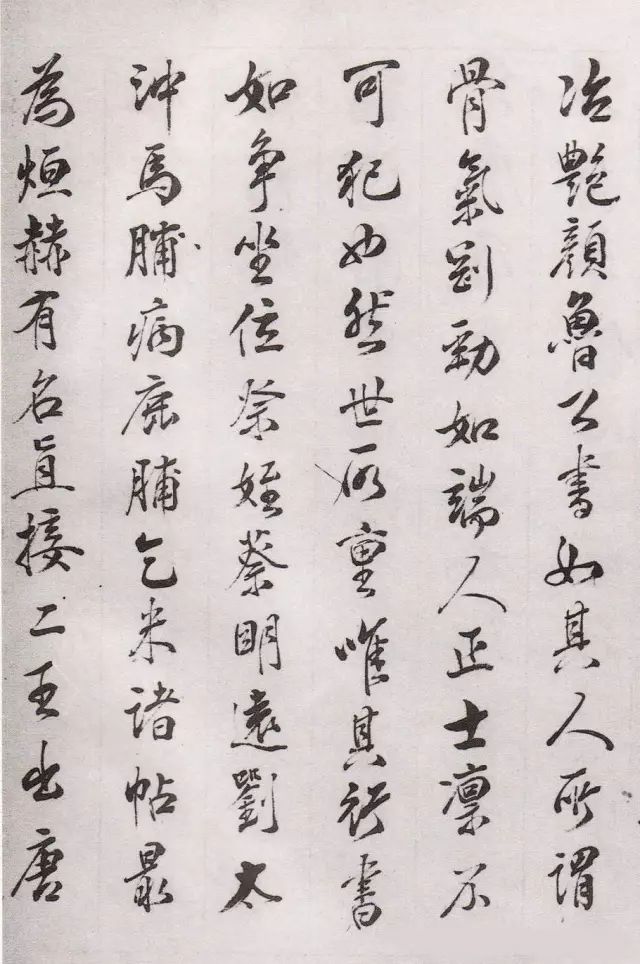 冶艷顏魯公書如其人所謂
骨氣剛勁如端人正士凜不
可犯也然世所重唯其行書
如争坐位祭姪蔡明遠劉太
沖馬脯病鹿脯乞米諸帖最
為烜赫有名直接二王出唐